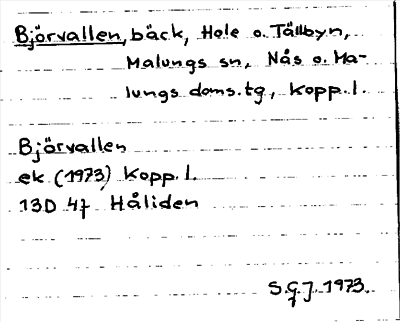 Björvallen, bäck, Hole o. Tällbyn,
Malungs sn, Nås o. Ma-
lungs doms.tg, Kopp. l.
Björvallen
ek (1973) Kopp. l.
13D 4f Håliden
S.G.J. 1973.